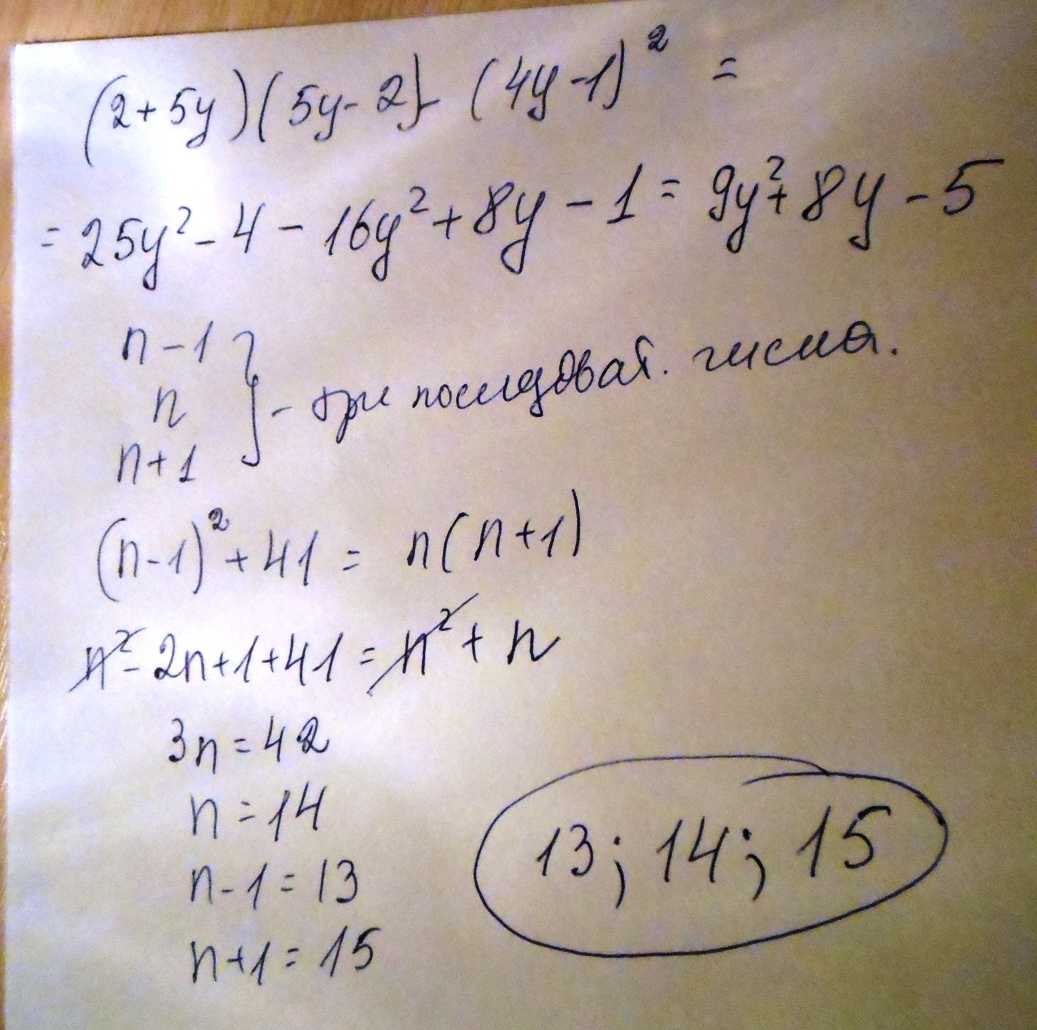 (2+5y)(5y-2)-(4y-1)² =
= 25y² - 4 - 16y² + 8y - 1 = 9y² + 8y - 5
n-1
n } - три последоват. числа.
n+1
(n-1)² + 41 = n(n+1)
n² - 2n+1+41 = n² + n
3n = 42
n = 14
n-1 = 13
n+1 = 15
13; 14; 15